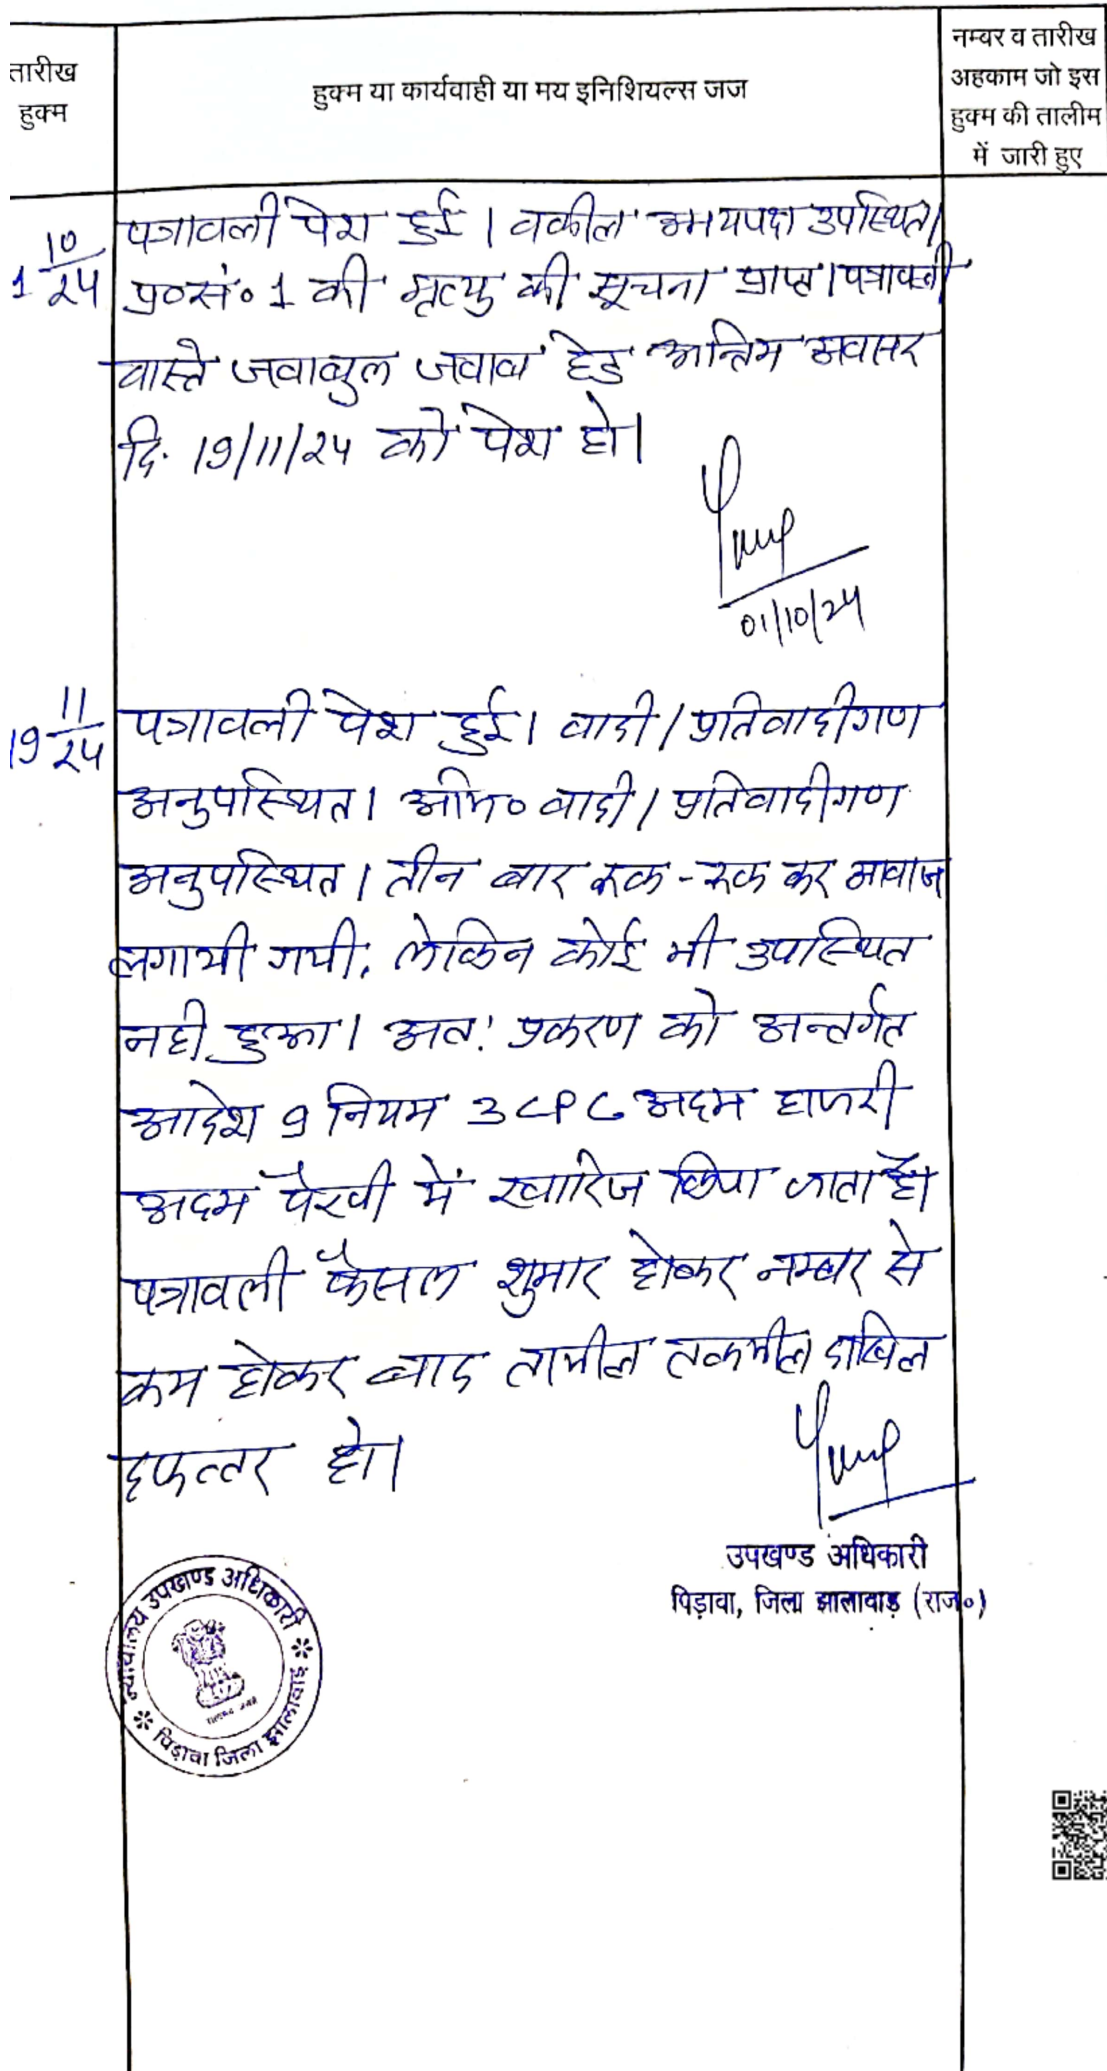 तारीख
हुक्म
हुक्म या कार्यवाही या मय इनिशियल्स जज
नम्बर व तारीख
अहकाम जो इस
हुक्म की तालीम
में जारी हुए
1 10/24
पत्रावली पेश हुई। वकील उभयपक्ष उपस्थित।
प्र०सं० 1 की मृत्यु की सूचना प्राप्त। पत्रावली
वास्ते जवाबुल जवाब हेतु अन्तिम अवसर
दि. 19/11/24 को पेश हो।
01/10/24
19 11/24
पत्रावली पेश हुई। वादी/प्रतिवादीगण
अनुपस्थित। अभि० वादी/प्रतिवादीगण
अनुपस्थित। तीन बार रूक-रूक कर आवाज
लगायी गयी, लेकिन कोई भी उपस्थित
नही हुआ। अत: प्रकरण को अन्तर्गत
आदेश 9 नियम 3 CPC अदम हाजरी
अदम पैरवी में खारिज किया जाता है।
पत्रावली फैसल शुमार होकर नम्बर से
कम होकर बाद तामील तकमील दाखिल
दफ्तर हो।
उपखण्ड अधिकारी
पिड़ावा, जिला झालावाड़ (राज०)
न्यायालय उपखण्ड अधिकारी
पिड़ावा जिला झालावाड़